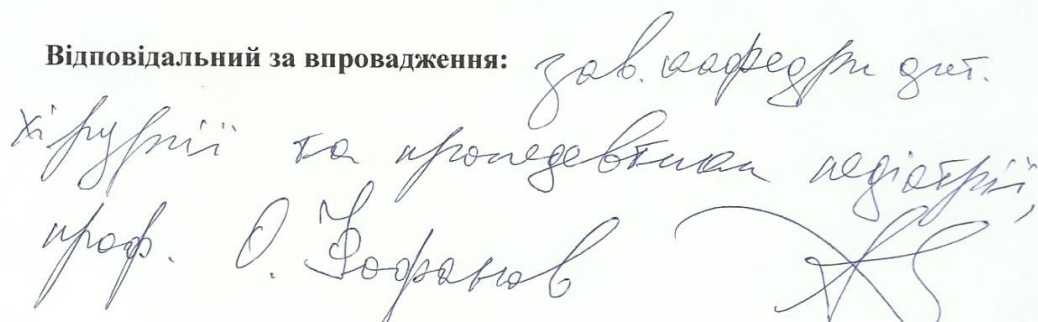 Відповідальний за впровадження: зав. кафедри дит.
хірургії та пропедевтики педіатрії,
проф. О. Фофанов